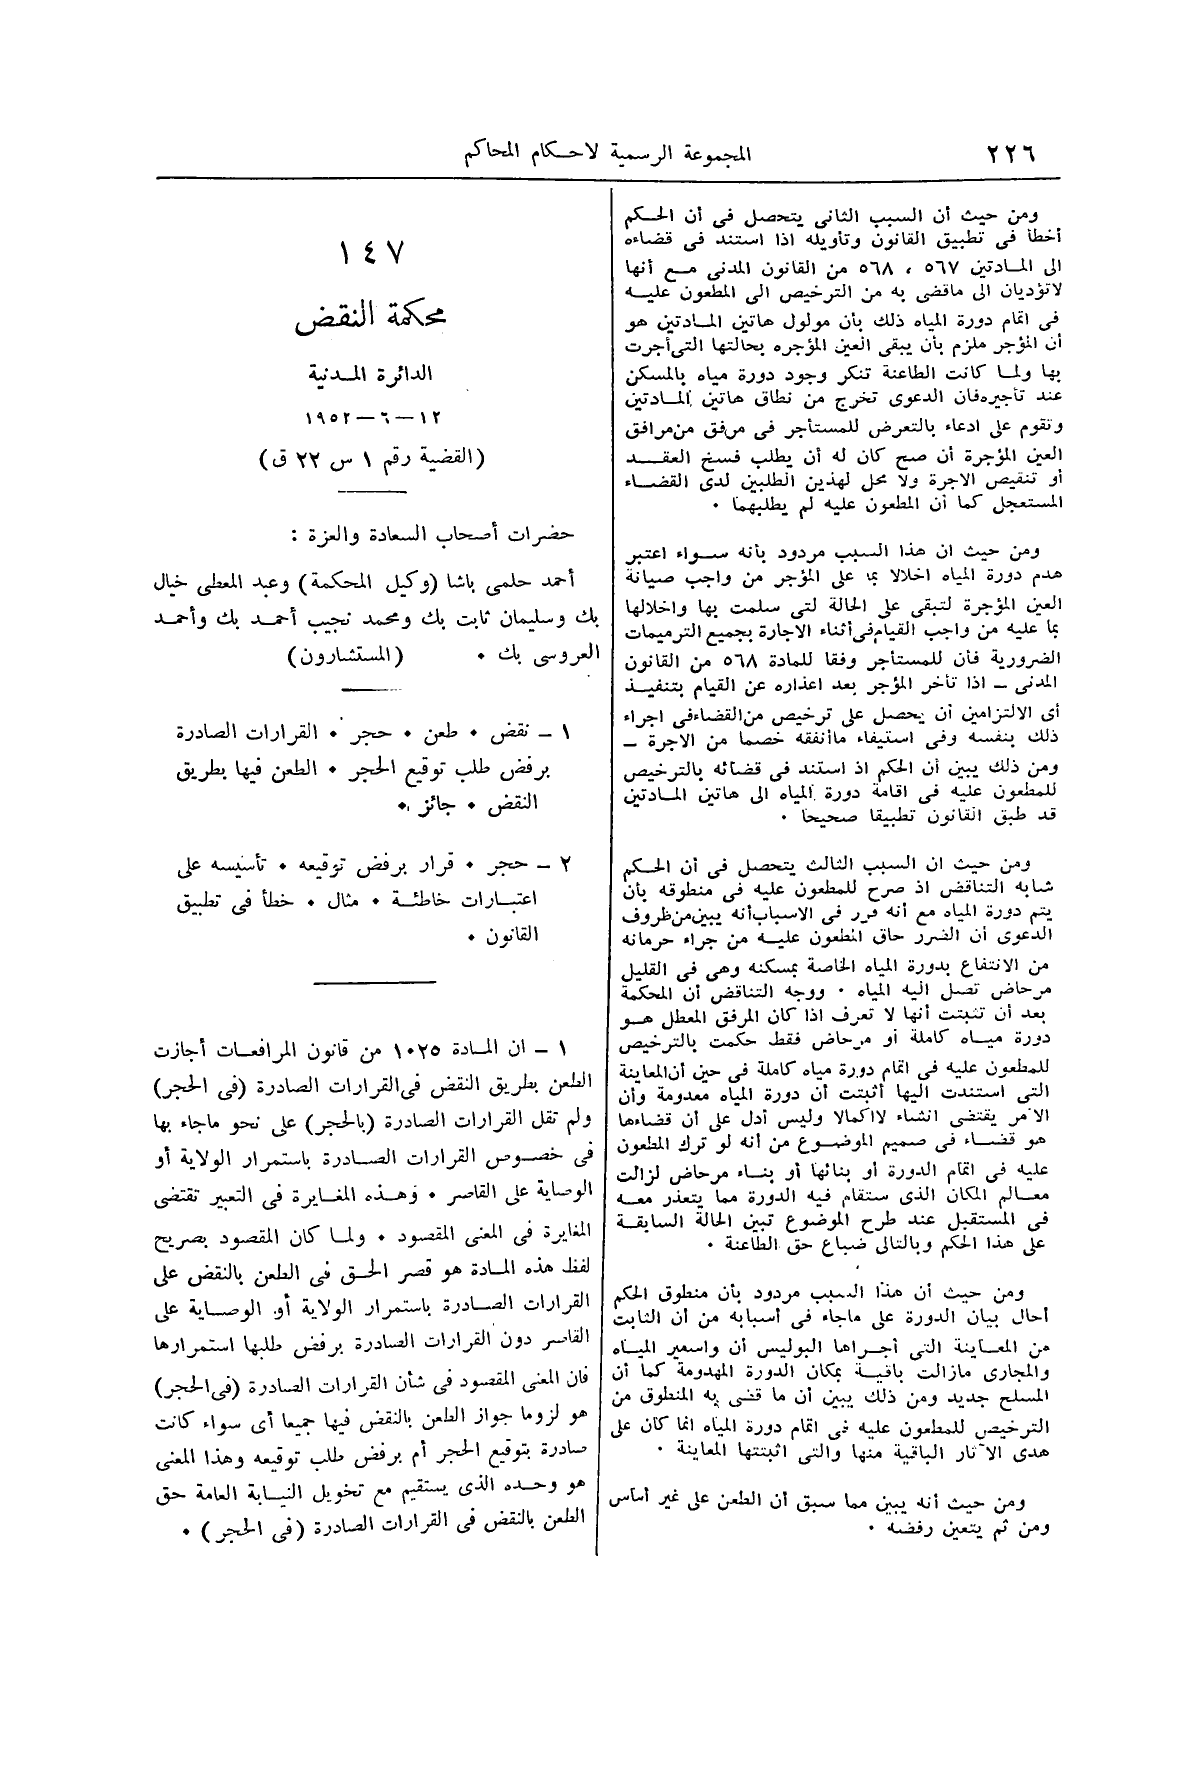 ٢٢٦
المجموعة الرسمية لاحكام المحاكم
ومن حيث أن السبب الثانى يتحصل فى أن الحكم
أخطأ فى تطبيق القانون وتأويله اذا استند فى قضاءه
الى المادتين ٥٦٧ ، ٥٦٨ من القانون المدنى مع أنها
لاتؤديان الى ماقضى به من الترخيص الى المطعون عليه
فى اتمام دورة المياه ذلك بأن مولول هاتين المادتين هو
أن المؤجر ملزم بأن يبقى العين المؤجره بحالتها التى أجرت
بها ولما كانت الطاعنة تنكر وجود دورة مياه بالمسكن
عند تأجيره فان الدعوى تخرج من نطاق هاتين المادتين
وتقوم على ادعاء بالتعرض للمستأجر فى مرفق من مرافق
العين المؤجرة أن صح كان له أن يطلب فسخ العقد
أو تنقيص الاجرة ولا محل لهذين الطلبين لدى القضاء
المستعجل كما أن المطعون عليه لم يطلبهما ٠
ومن حيث ان هذا السبب مردود بأنه سواء اعتبر
هدم دورة المياه اخلالا بما على المؤجر من واجب صيانة
العين المؤجرة لتبقى على الحالة لتى سلمت بها واخلالها
بما عليه من واجب القيام فى أثناء الاجارة بجميع الترميمات
الضرورية فأن للمستأجر وفقا للمادة ٥٦٨ من القانون
المدنى – اذا تأخر المؤجر بعد اعذاره عن القيام بتنفيذ
أى الالتزامين أن يحصل على ترخيص من القضاء فى اجراء
ذلك بنفسه وفى استيفاء ماأنفقه خصما من الاجرة –
ومن ذلك يبين أن الحكم اذ استند فى قضائه بالترخيص
للمطعون عليه فى اقامة دورة المياه الى هاتين المادتين
قد طبق القانون تطبيقا صحيحا ٠
ومن حيث ان السبب الثالث يتحصل فى أن الحكم
شابه التناقض اذ صرح للمطعون عليه فى منطوقه بأن
يتم دورة المياه مع أنه قرر فى الاسباب أنه يبين من ظروف
الدعوى أن الضرر حاق المطعون عليه من جراء حرمانه
من الانتفاع بدورة المياه الخاصة بمسكنه وهى فى القليل
مرحاض تصل اليه المياه ٠ ووجه التناقض أن المحكمة
بعد أن تثبتت أنها لا تعرف اذا كان المرفق المعطل هو
دورة مياه كاملة أو مرحاض فقط حكمت بالترخيص
للمطعون عليه فى اتمام دورة مياه كاملة فى حين أن المعاينة
التى استندت اليها أثبتت أن دورة المياه معدومة وأن
الأمر يقتضى انشاء لااكمالا وليس أدل على أن قضاءها
هو قضاء فى صميم الموضوع من أنه لو ترك المطعون
عليه فى اتمام الدورة أو بنائها أو بناء مرحاض لزالت
معالم المكان الذى ستقام فيه الدورة مما يتعذر معه
فى المستقبل عند طرح الموضوع تبين الحالة السابقة
على هذا الحكم وبالتالى ضياع حق الطاعنة ٠
ومن حيث أن هذا السبب مردود بأن منطوق الحكم
أحال بيان الدورة على ماجاء فى أسبابه من أن الثابت
من المعاينة التى أجراها البوليس أن واسمير المياه
والمجارى مازالت باقية بمكان الدورة المهدومة كما أن
المسلح جديد ومن ذلك يبين أن ما قضى به المنطوق من
الترخيص للمطعون عليه فى اتمام دورة المياه انما كان على
هدى الآثار الباقية منها والتى اثبتتها المعاينة ٠
ومن حيث أنه يبين مما سبق أن الطعن على غير أساس
ومن ثم يتعين رفضه ٠
١٤٧
محكمة النقض
الدائرة المدنية
١٢ – ٦ – ١٩٥٢
(القضية رقم ١ س ٢٢ ق)
حضرات أصحاب السعادة والعزة :
أحمد حلمى باشا (وكيل المحكمة) وعبد المعطى خيال
بك وسليمان ثابت بك ومحمد نجيب أحمد بك وأحمد
العروسى بك ٠ (المستشارون)
١ – نقض ٠ طعن ٠ حجر ٠ القرارات الصادرة
برفض طلب توقيع الحجر ٠ الطعن فيها بطريق
النقض ٠ جائز ٠
٢ – حجر ٠ قرار برفض توقيعه ٠ تأسيسه على
اعتبارات خاطئة ٠ مثال ٠ خطأ فى تطبيق
القانون ٠
١ – ان المادة ١٠٢٥ من قانون المرافعات أجازت
الطعن بطريق النقض فى القرارات الصادرة (فى الحجر)
ولم تقل القرارات الصادرة (بالحجر) على نحو ماجاء بها
فى خصوص القرارات الصادرة باستمرار الولاية أو
الوصاية على القاصر ٠ وهذه المغايرة فى التعبير تقتضى
المغايرة فى المعنى المقصود ٠ ولما كان المقصود بصريح
لفظ هذه المادة هو قصر الحق فى الطعن بالنقض على
القرارات الصادرة باستمرار الولاية أو الوصاية على
القاصر دون القرارات الصادرة برفض طلبها استمرارها
فان المعنى المقصود فى شأن القرارات الصادرة (فى الحجر)
هو لزوما جواز الطعن بالنقض فيها جميعا أى سواء كانت
صادرة بتوقيع الحجر أم برفض طلب توقيعه وهذا المعنى
هو وحده الذى يستقيم مع تخويل النيابة العامة حق
الطعن بالنقض فى القرارات الصادرة (فى الحجر) ٠